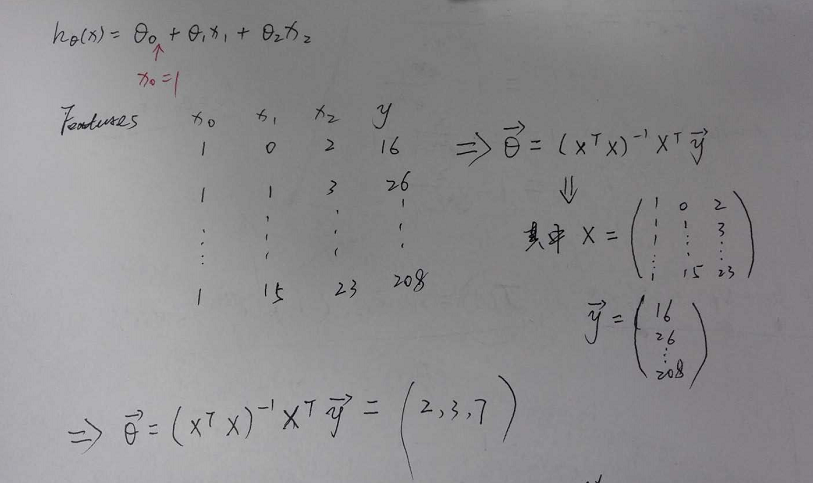 hθ(x) = θ₀ + θ₁x₁ + θ₂x₂
x₀=1
Features x₀ x₁ x₂ y
1 0 2 16
1 1 3 26
⋮ ⋮ ⋮ ⋮
1 15 23 208
⇒ θ⃗ = (XᵀX)⁻¹Xᵀy⃗
⇓
其中 X = ( 1 0 2
1 1 3
1 ⋮ ⋮
⋮
1 15 23 )
y⃗ = ( 16
26
⋮
208 )
⇒ θ⃗ = (XᵀX)⁻¹Xᵀy⃗ = (2,3,7)